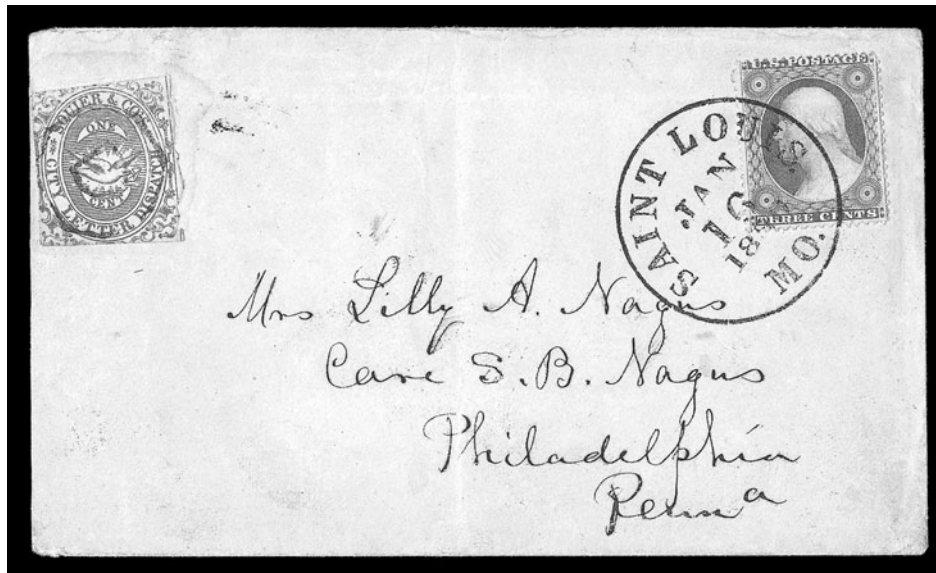 SQUIER & CO'S
CITY LETTER DISPATCH
ONE
CENT
U.S. POSTAGE
THREE CENTS
SAINT LOUIS MO.
JAN
Mrs Lilly A. Nagus
Care S. B. Nagus
Philadelphia
Penna